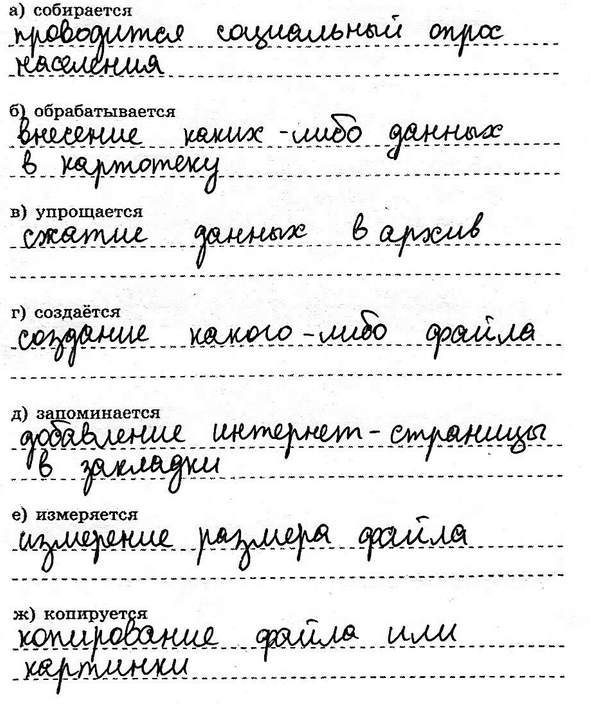 а) собирается
проводится социальный опрос
населения
б) обрабатывается
внесение каких-либо данных
в картотеку
в) упрощается
сжатие данных в архив
г) создаётся
создание какого-либо файла
д) запоминается
добавление интернет-страницы
в закладки
е) измеряется
измерение размера файла
ж) копируется
копирование файла или
картинки